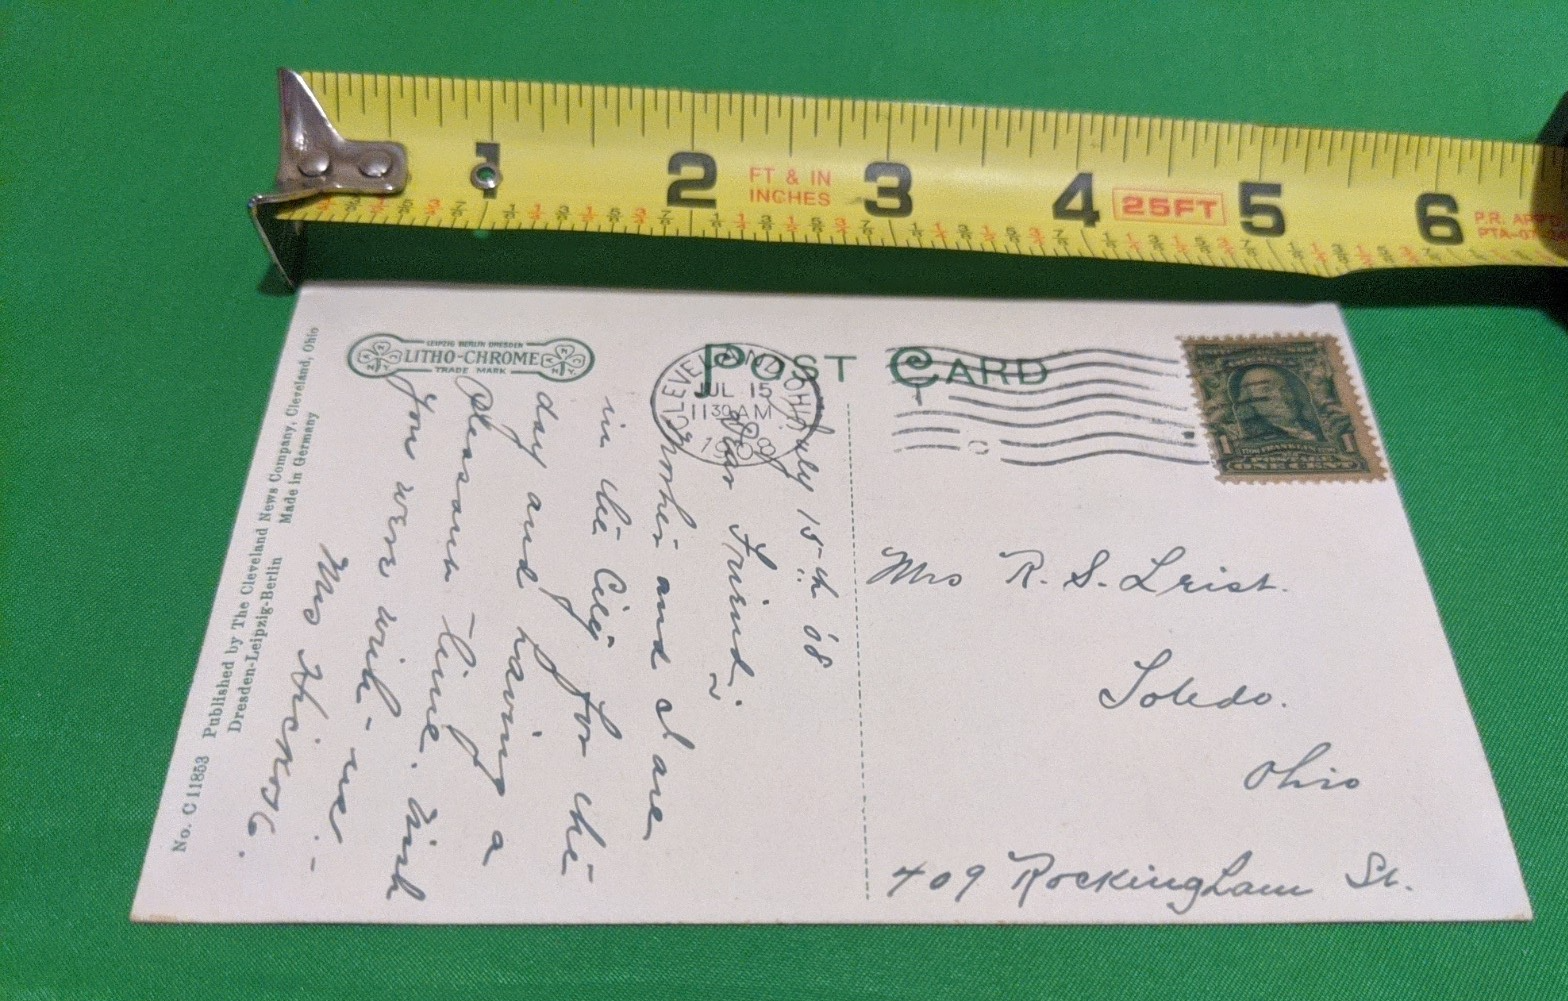 1 2 FT & IN 3 4 25FT 5 6 P.R. APP
INCHES PTA-GT
LEIPZIG BERLIN DRESDEN
LITHO-CHROME
TRADE MARK
POST CARD
CLEVELAND, OHIO
JUL 15
11 30 AM
1908
1 1
ONE CENT
July 15-th '08
Dear Friend.
and I are
in the City for the
day and having a
pleasant time. Wish
You were with me.
Mrs
No. C 11853 Published by The Cleveland News Company, Cleveland, Ohio
Dresden-Leipzig-Berlin Made in Germany
Mrs R. S. Leist.
Toledo.
Ohio
409 Rockingham St.